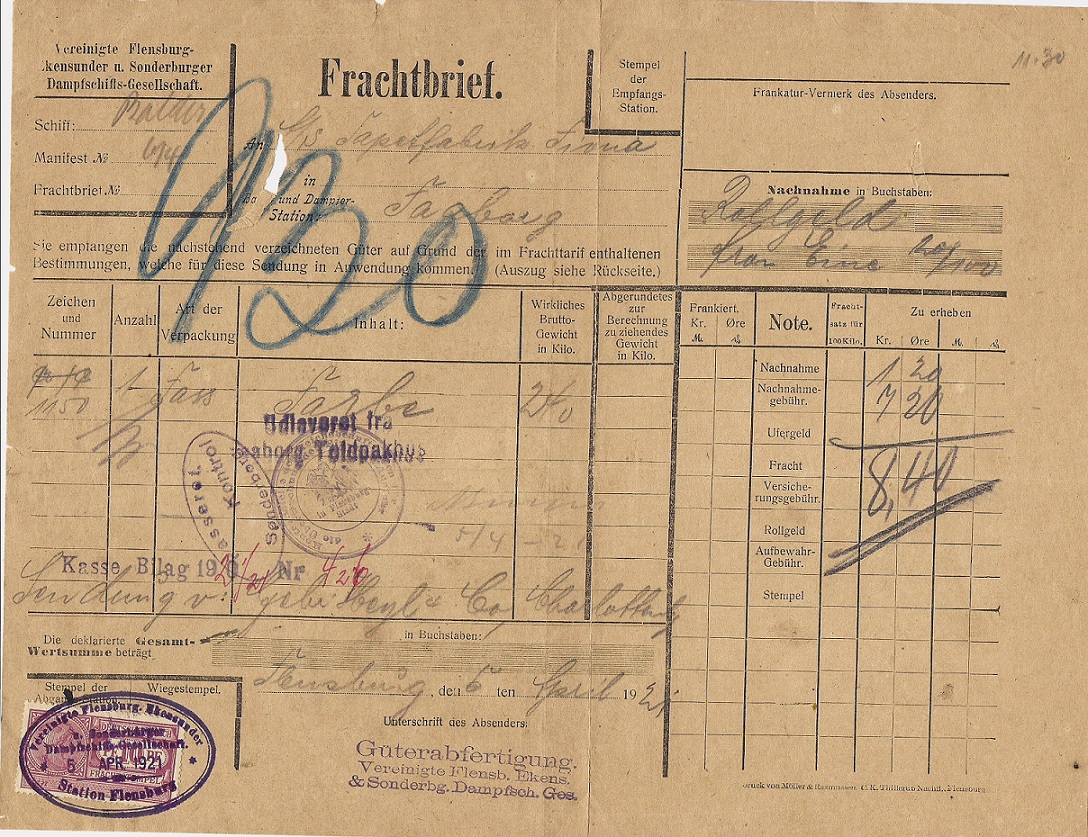 Vereinigte Flensburg-
Ekensunder u. Sonderburger
Dampfschiffs-Gesellschaft.
Schiff: Baldur
Manifest №
Frachtbrief №
Frachtbrief.
An A/S Tapetfabrik Fiona
in
und Dampfer-
Station: Faaborg
Stempel
der
Empfangs-
Station.
11.30
Frankatur-Vermerk des Absenders.
Nachnahme in Buchstaben:
Rollgeld
Kron Eine 20/100
930
Sie empfangen die nachstehend verzeichneten Güter auf Grund der im Frachttarif enthaltenen
Bestimmungen, welche für diese Sendung in Anwendung kommen. (Auszug siehe Rückseite.)
Zeichen und Nummer
Anzahl
Art der Verpackung
Inhalt:
Wirkliches Brutto-Gewicht in Kilo.
Abgerundetes zur Berechnung zu ziehendes Gewicht in Kilo.
Frankiert.
Kr. Øre
M. ₰
Note.
Fracht-satz für 100 Kilo.
Zu erheben
Kr. Øre M. ₰
1150 1 Fass Farbe 240
Nachnahme 1 20
Nachnahme-gebühr. 7 20
Ufergeld
Fracht 8,40
Versiche-rungsgebühr.
Rollgeld
Aufbewahr-Gebühr.
Stempel
Udleveret fra
Faaborg Toldpakhus
Kasseret
Kontrol
Sønderborg
in Flensburg
Stadt
5/4 - 21
Kasse Bilag 1920/21 Nr 426
Sendung v: Gebr. Heyl & Co, Charlottenbg
Die deklarierte Gesamt-
Wertsumme beträgt
in Buchstaben:
Flensburg, den 5 ten April 1921
Unterschrift des Absenders:
Güterabfertigung.
Vereinigte Flensb. Ekens.
& Sonderbg. Dampfsch. Ges.
Stempel der
Abgangs-Station
Wiegestempel.
Vereinigte Flensburg. Ekensunder
u. Sonderburger
Dampfschiffs-Gesellschaft.
* 5. APR 1921 *
Station Flensburg
Druck von Möller & Rasmussen, C. K. Thillerup Nachfl., Flensburg